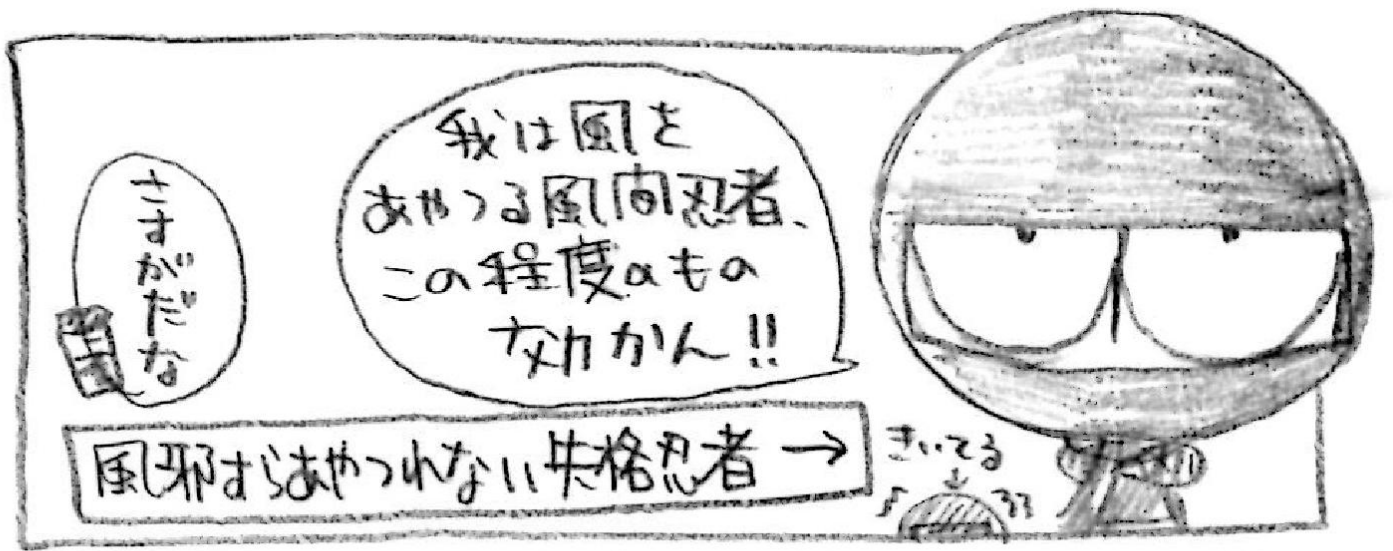 我は風を
あやつる風間忍者、
この程度のもの
効かん!!
さすがだな
風邪すらあやつれない失格忍者→
きいてる